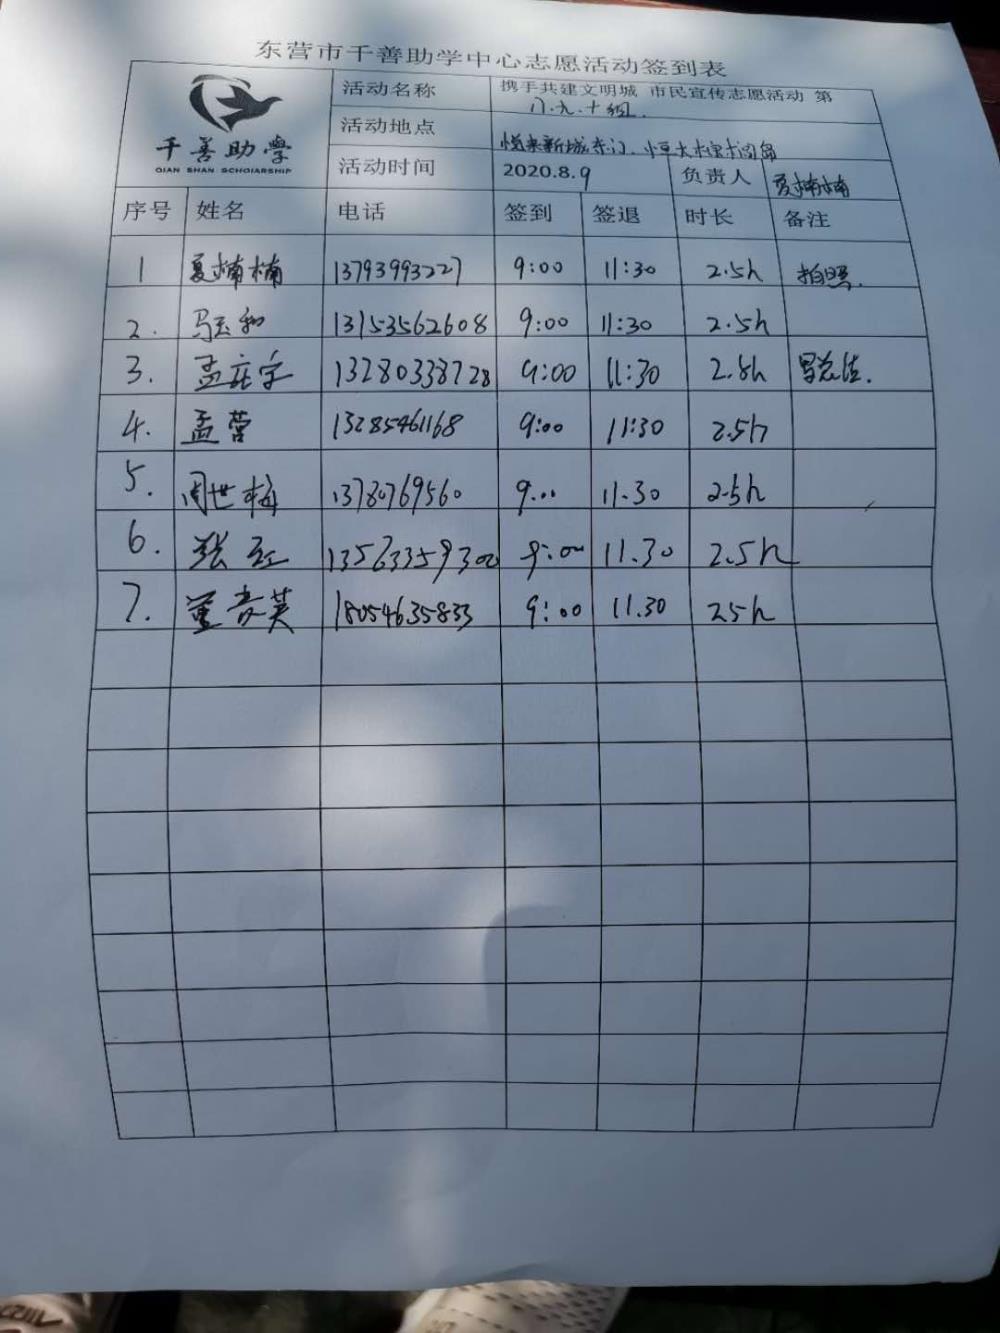 东营市千善助学中心志愿活动签到表
千善助学
QIAN SHAN SCHOIARSHIP
活动名称 携手共建文明城 市民宣传志愿活动 第
八.九.十组.
活动地点 悦来新城东门.恒大
活动时间 2020.8.9 负责人 夏楠楠
序号 姓名 电话 签到 签退 时长 备注
1 夏楠楠 13793993227 9:00 11:30 2.5h 拍照.
2. 13153562608 9:00 11:30 2.5h
3. 孟庄宇 13280338728 9:00 11:30 2.5h 写总结.
4. 孟营 13285461168 9:00 11:30 2.5h
5. 周世梅 9.00 11.30 2.5h
6. 张红 13563359300 9:00 11.30 2.5h
7. 董彦英 18054635833 9:00 11.30 25h